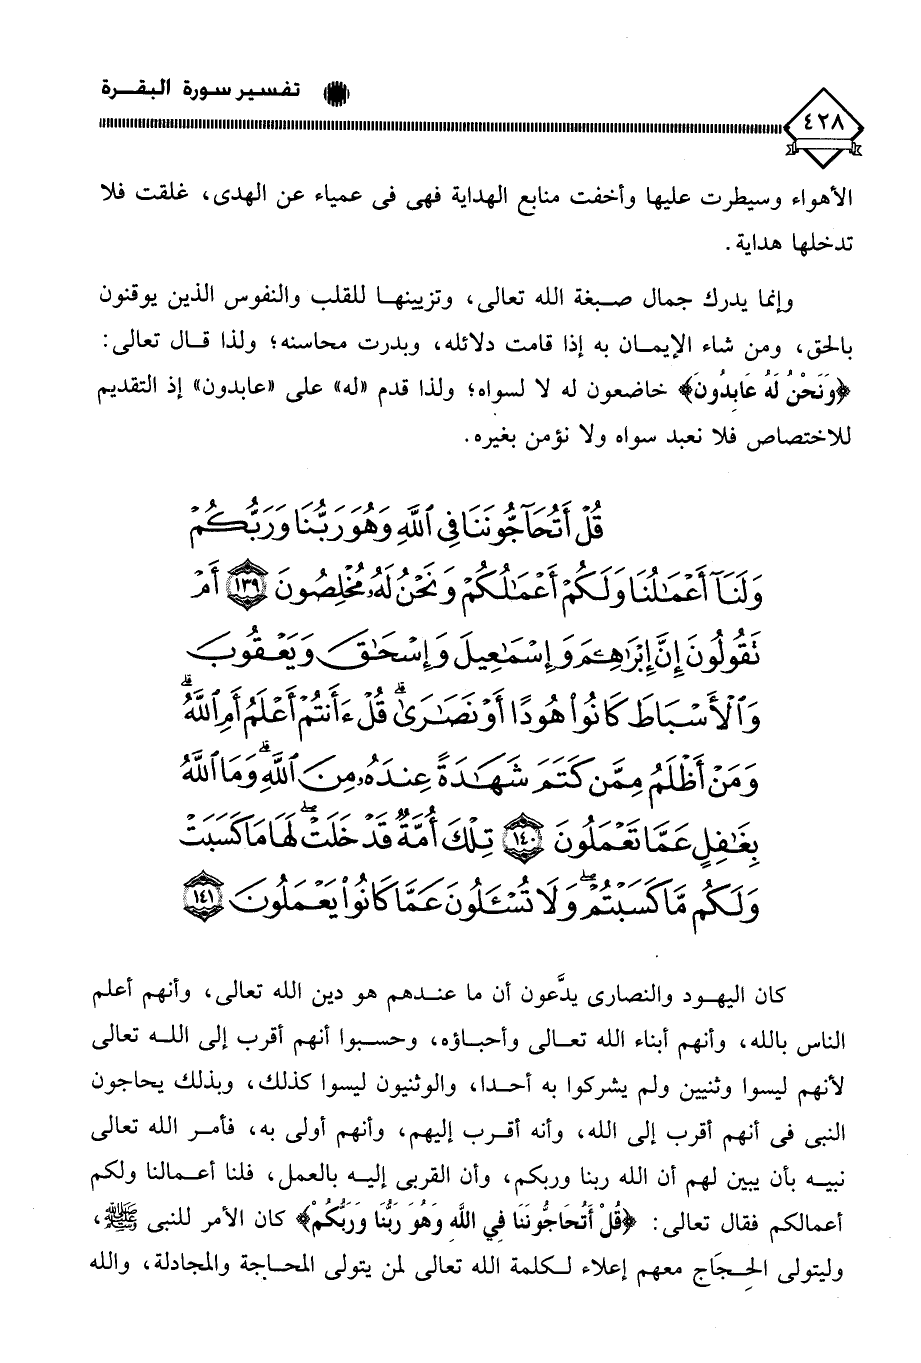 تفسير سورة البقرة
٤٢٨
الأهواء وسيطرت عليها وأخفت منابع الهداية فهى فى عمياء عن الهدى، غلقت فلا
تدخلها هداية.
وإنما يدرك جمال صبغة الله تعالى، وتزيينها للقلب والنفوس الذين يوقنون
بالحق، ومن شاء الإيمان به إذا قامت دلائله، وبدرت محاسنه؛ ولذا قال تعالى:
﴿وَنَحْنُ لَهُ عَابِدُونَ﴾ خاضعون له لا لسواه؛ ولذا قدم «له» على «عابدون» إذ التقديم
للاختصاص فلا نعبد سواه ولا نؤمن بغيره.
قُلْ أَتُحَآجُّونَنَا فِي ٱللَّهِ وَهُوَ رَبُّنَا وَرَبُّكُمْ
وَلَنَآ أَعْمَٰلُنَا وَلَكُمْ أَعْمَٰلُكُمْ وَنَحْنُ لَهُۥ مُخْلِصُونَ ١٣٩ أَمْ
تَقُولُونَ إِنَّ إِبْرَٰهِـۧمَ وَإِسْمَٰعِيلَ وَإِسْحَٰقَ وَيَعْقُوبَ
وَٱلْأَسْبَاطَ كَانُوا۟ هُودًا أَوْ نَصَٰرَىٰ ۗ قُلْ ءَأَنتُمْ أَعْلَمُ أَمِ ٱللَّهُ ۗ
وَمَنْ أَظْلَمُ مِمَّن كَتَمَ شَهَٰدَةً عِندَهُۥ مِنَ ٱللَّهِ ۗ وَمَا ٱللَّهُ
بِغَٰفِلٍ عَمَّا تَعْمَلُونَ ١٤٠ تِلْكَ أُمَّةٌ قَدْ خَلَتْ ۖ لَهَا مَا كَسَبَتْ
وَلَكُم مَّا كَسَبْتُمْ ۖ وَلَا تُسْـَٔلُونَ عَمَّا كَانُوا۟ يَعْمَلُونَ ١٤١
كان اليهود والنصارى يدَّعون أن ما عندهم هو دين الله تعالى، وأنهم أعلم
الناس بالله، وأنهم أبناء الله تعالى وأحباؤه، وحسبوا أنهم أقرب إلى الله تعالى
لأنهم ليسوا وثنيين ولم يشركوا به أحدا، والوثنيون ليسوا كذلك، وبذلك يحاجون
النبى فى أنهم أقرب إلى الله، وأنه أقرب إليهم، وأنهم أولى به، فأمر الله تعالى
نبيه بأن يبين لهم أن الله ربنا وربكم، وأن القربى إليه بالعمل، فلنا أعمالنا ولكم
أعمالكم فقال تعالى: ﴿قُلْ أَتُحَاجُّونَنَا فِي اللَّهِ وَهُوَ رَبُّنَا وَرَبُّكُمْ﴾ كان الأمر للنبى ﷺ،
وليتولى الحِجَاج معهم إعلاء لكلمة الله تعالى لمن يتولى المحاجة والمجادلة، والله